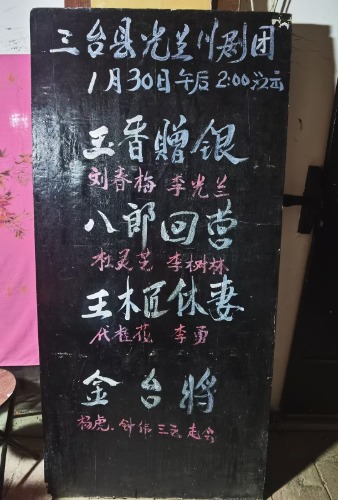 三台县光兰川剧团
1月30日午后2:00演
玉香赠银
刘春梅 李光兰
八郎回营
杜灵芝 李树林
王木匠休妻
代桂花 李勇
金台将
杨虎.钟伟